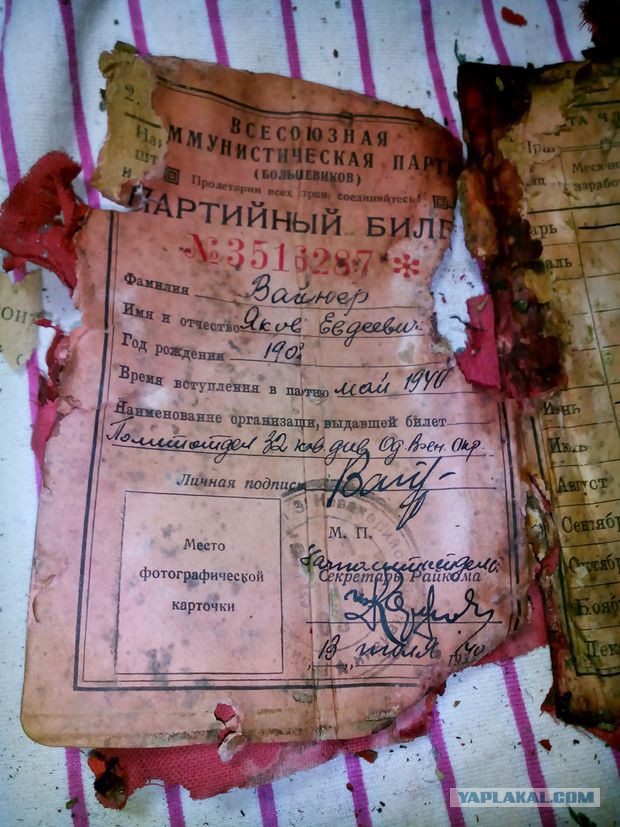 2.
На
шт
и
ВСЕСОЮЗНАЯ
ММУНИСТИЧЕСКАЯ ПАРТИ
(БОЛЬШЕВИКОВ)
Пролетарии всех стран, соединяйтесь!
ПАРТИЙНЫЙ БИЛЕ
№3516287 *
Фамилия Вайнер
Имя и отчество Яков Евдеевич
Год рождения 190
Время вступления в партию май 1940
Наименование организации, выдавшей билет
Политотдел 32 кав. див. Од. Воен. Окр.
Личная подпись
М. П.
Место
фотографической
карточки
Секретарь Райкома
13 июля 1940
Месячн
заработ
арь
аль
Июнь
Июль
Август
Сентябр
Октябр
Ноябр
Дек
YAPLAKAL.COM